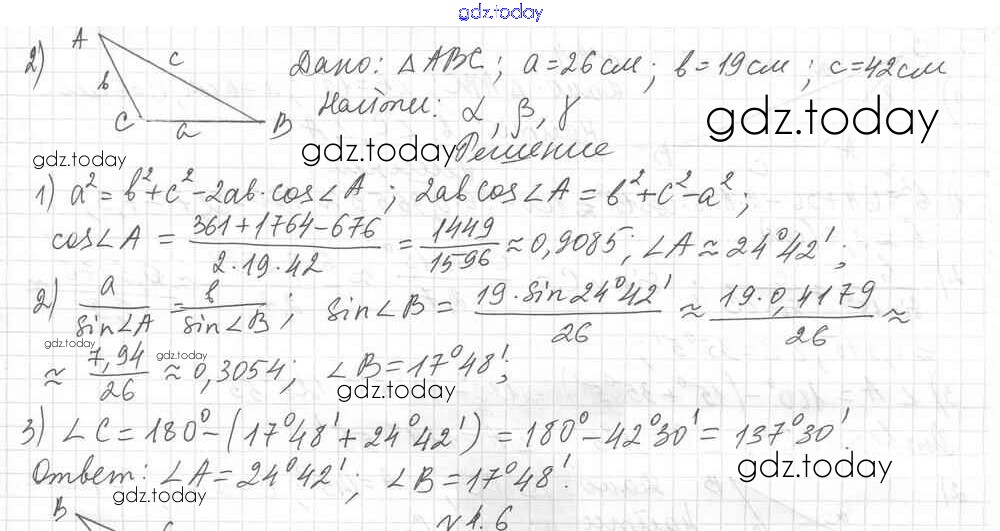 gdz.today
2) A c b C a B
Дано: △ABC; a=26см; b=19см; c=42см
Найти: α, β, γ
gdz.today
gdz.today
gdz.today
Решение
1) a² = b²+c²-2ab·cos∠A; 2ab cos∠A = b²+c²-a²;
cos∠A = (361+1764-676)/(2·19·42) = 1449/1596 ≈ 0,9085; ∠A ≈ 24°42';
2) a/sin∠A = b/sin∠B; sin∠B = (19·sin24°42')/26 ≈ (19·0,4179)/26 ≈
gdz.today
gdz.today
≈ 7,94/26 ≈ 0,3054; ∠B=17°48';
gdz.today
3) ∠C = 180°-(17°48'+24°42') = 180°-42°30' = 137°30'.
Ответ: ∠A = 24°42'; ∠B = 17°48'.
gdz.today
gdz.today
B c
№4.6